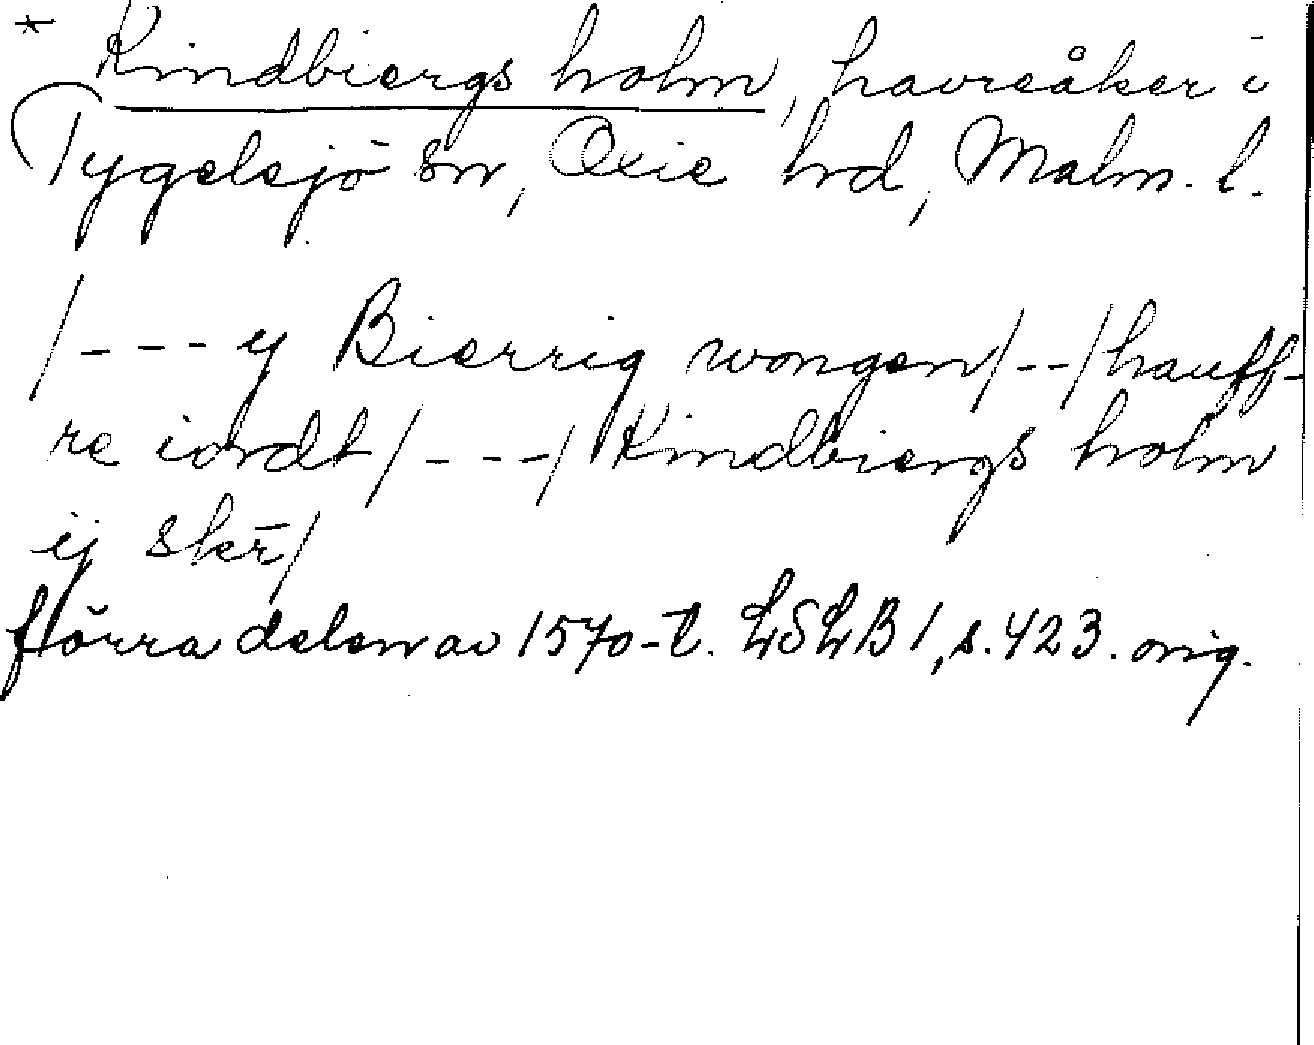 * Kindbiergs holm, havreåker i
Tygelsjö sn, Oxie hd, Malm. l.
/--- y Bierrig wongen/--/hauff-
re iordt/---/Kindbiergs holm
ij skr̄/
förra delen av 1570-t. LSLB 1, s. 423. orig.